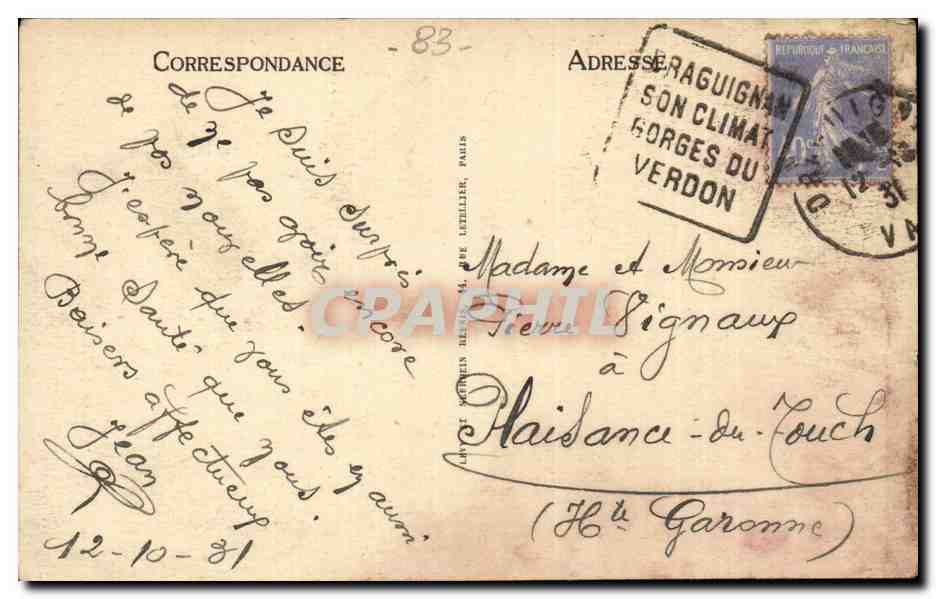 - 83 -
CORRESPONDANCE
ADRESSE
DRAGUIGNAN
SON CLIMAT
GORGES DU
VERDON
REPUBLIQUE FRANÇAISE
12
31
VA
Je suis surpris
de ne pas avoir encore
de vos nouvelles.
J'espère que vous êtes en aussi
bonne santé que nous.
Baisers affectueux
Jean
12-10-31
LEVY ET NEURDEIN REUNIS 44, RUE LETELLIER, PARIS
Madame et Monsieur
Pierre Vignaux
à
Plaisance-du-Touch
(Hte Garonne)
CPAPHIL